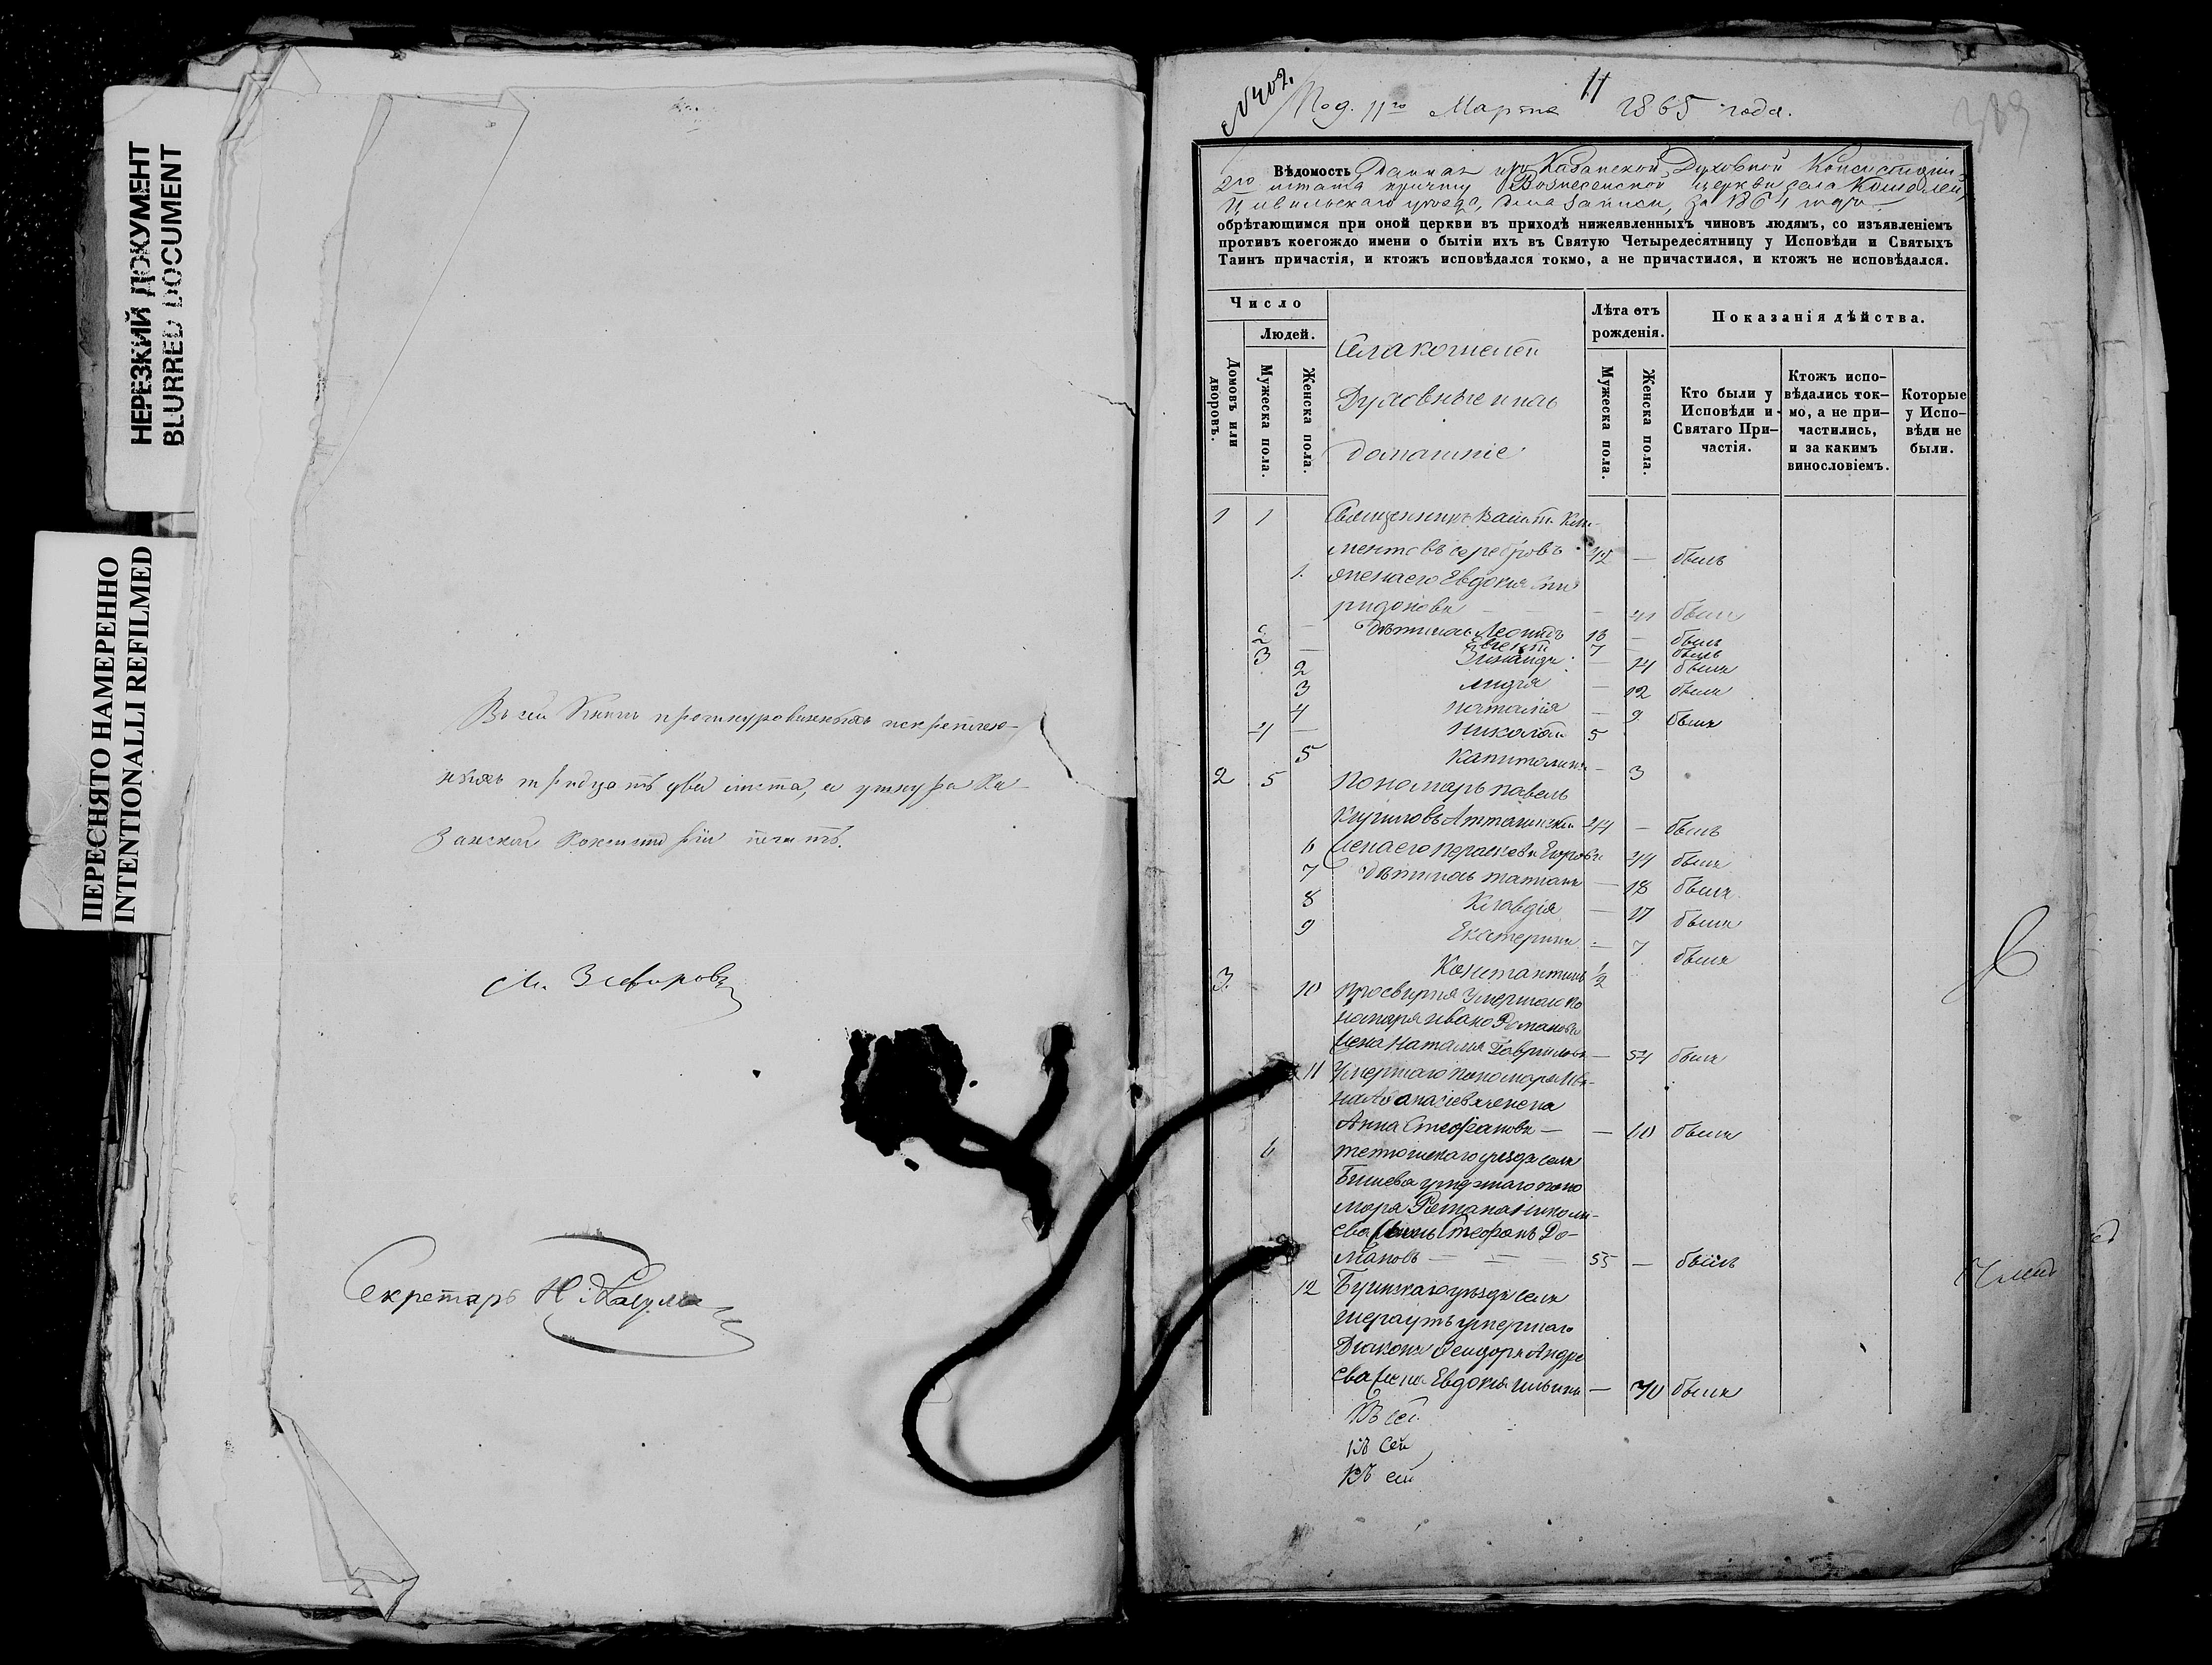 НЕРЕЗКИЙ ДОКУМЕНТ
BLURRED DOCUMENT
ПЕРЕСНЯТО НАМЕРЕННО
INTENTIONALLI REFILMED
Въ сей Книгѣ прошнурованныхъ и скрѣплен-
ныхъ тридцать два листа, а у шнура Ка-
занской Консисторіи печать.
М. Зефировъ
Секретарь Н.
№402.
11
Под. 11го Марта 1865 года.
Вѣдомость Данная изъ Казанской Духовной Консисторіи
2го штата причту Вознесенской церкви села Кошелей,
Цивильскаго уѣзда, для записи, за 1864 годъ
обрѣтающимся при оной церкви въ приходѣ нижеявленныхъ чиновъ людямъ, со изъявленіемъ
противъ коегождо имени о бытіи ихъ въ Святую Четыредесятницу у Исповѣди и Святыхъ
Таинъ причастія, и ктожъ исповѣдался токмо, а не причастился, и ктожъ не исповѣдался.
Число
Людей.
Домовъ или дворовъ.
Мужеска пола.
Женска пола.
Села Кошелей
Духовные и ихъ
домашніе
Лѣта отъ рожденія.
Мужеска пола.
Женска пола.
Показанія дѣйства.
Кто были у Исповѣди и Святаго При-частія.
Ктожъ испо-вѣдались ток-мо, а не при-частились, и за какимъ винословіемъ.
Которые у Испо-вѣди не были.
1 1 Священникъ
ментовъ Серебровъ 42 — былъ
1. жена его Евдокія Спи
ридонова — 41 была
2 — Дѣти ихъ Леонидъ 13 — былъ
3 — 7 — былъ
2 Зинаида — 14 была
3 Лидія — 12 была
4 Наталія — 9 была
4 — Николай 5
5 Капитолина — 3
2 5 Пономарь Павелъ
Кириловъ 44 — былъ
6 Жена его Параскева Егорова 44 была
7 Дѣти ихъ Татіана — 18 была
8 Клавдія — 17 была
9 Екатерина — 7 была
Константинъ 1/2
3. 10 Просвирня Умершаго по
номаря Ивана Романова
Жена Наталія Гаврилова — 54 была
11 Умершаго пономаря Ива-
на Аѳанасіева жена
Анна Стефанова — — 60 была
6 Тетюшскаго уѣзда села
Бишева умершаго поно
маря Романа Никола-
ева Сынъ Стефанъ Ро-
мановъ — 55 — былъ
12 Буинскаго уѣзда села
Шераутъ умершаго
Діакона Ѳеодора Андре
ева Жена Евдокія Ильина — 70 была
Въ сей
Въ Сей
Въ сей